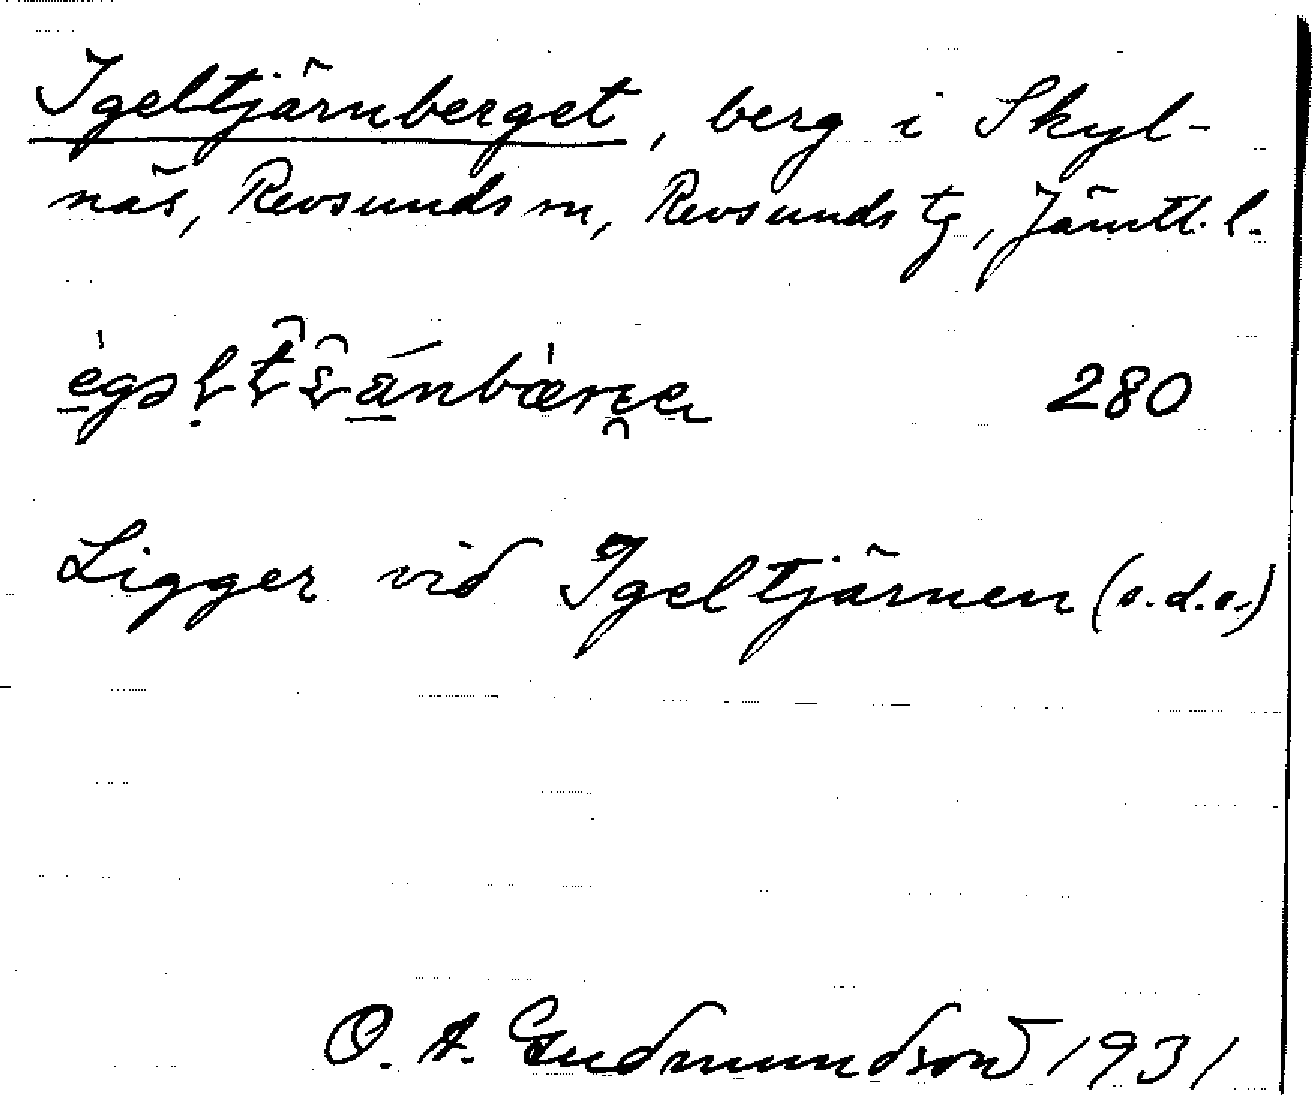 Igeltjärnberget, berg i Skyl-
näs, Revsunds sn, Revsunds tg, Jämtl. l.
280
Ligger vid Igeltjärnen (s.d.o.)
O. A. Gudmundson 1931